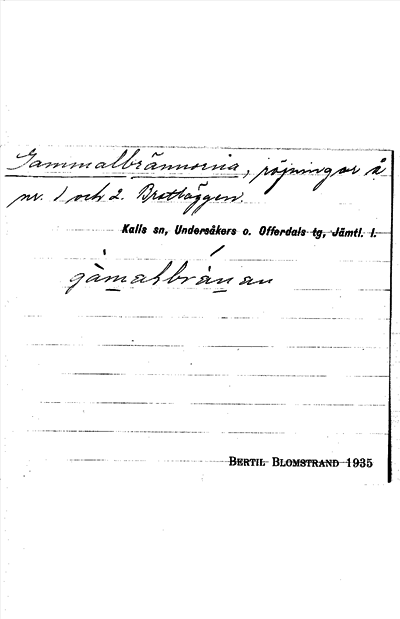 Gammalbrännorna, röjningar å
nr. 1 och 2. Brattbäggen.
Kalls sn, Undersåkers o. Offerdals tg, Jämtl. l.
gàmalbránan
BERTIL BLOMSTRAND 1935